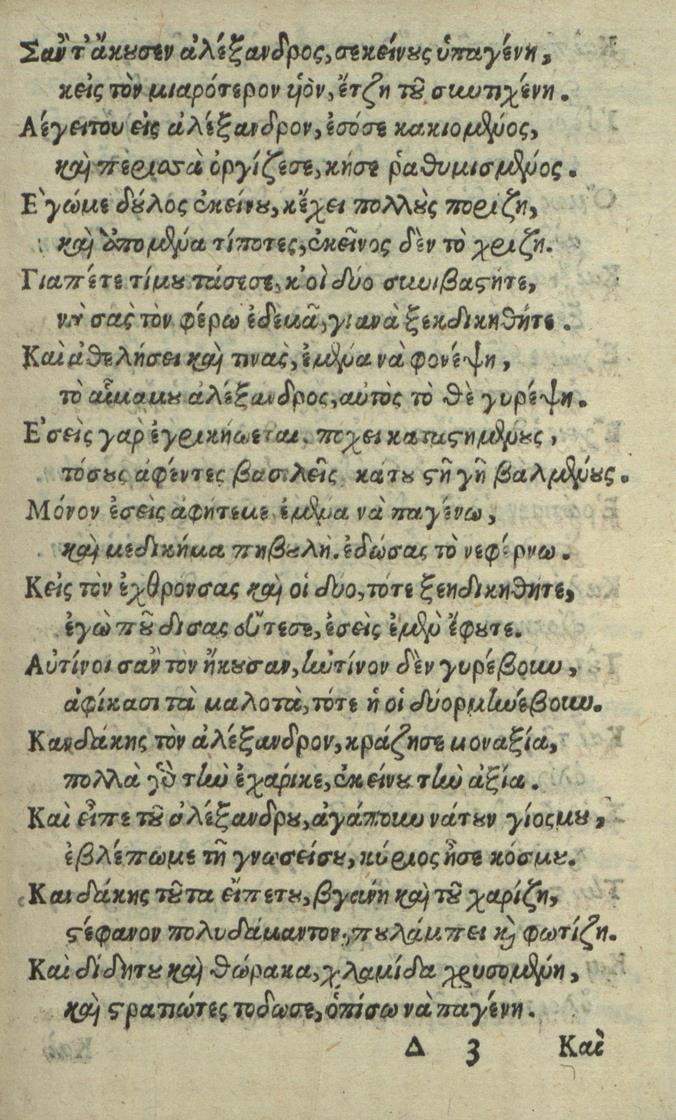 Σαν τ' άκουσεν αλέξανδρος, σεκείνους υπαγένη,
κεις τὸν μιαρότερον ὑὸν, έτζη τοῦ συντιχένη.
Λέγει του εις αλέξανδρον, εσόσε κακιομένος,
καὶ περισσὰ ὀργίζεσε, κήσε ῥαθυμισμένος.
Ε'γώμε δούλος ἐκείνου, κέχει πολλοὺς ποριζη,
καὶ ἀπομένα τίποτες, ἐκεῖνος δὲν τὸ χριζη.
Γιαπέτε τίμου τάσεσε, κ' οἱ δύο συνιβαστῆτε,
νὰ σας τὸν φέρω ἐδεκᾶ, γιανὰ ξεκδικηθῆτε.
Καὶ ἀθελήσει καὶ τινας, ἐμένα νὰ φονέψη,
τὸ αἷμαμου αλέξανδρος, αὐτὸς τὸ θὲ γυρέψη.
Ε'σεῖς γαρ ἐγρικήσεται. πὄχει καταστημένους,
τόσους αφέντες βασιλεῖς κάτου στῆ γῆ βαλμένους.
Μόνον ἐσεὶς αφήτεμε ἐμένα νὰ παγένω,
καὶ μεδικήμα πηβουλὴ. ἐδώσας τὸ νεφέρνω.
Κεὶς τον ἐχθρόνσας καὶ οἱ δυο, τότε ξενδικηθῆτε,
ἐγὼ ποῦ δισας οὕτεσε, ἐσεὶς ἐμὲν ἔφυτε.
Αὐτίνοι σαν τον ἤκουσαν, αὐτίνον δὲν γυρέβουν,
αφίκασι τὰ μαλοτὰ, τότε ἡ οἱ δύορμηνέβουν.
Κανδάκης τὸν ἀλέξανδρον, κράζησε μοναξία,
πολλὰ γὰρ τὴν ἐχαρικε, ἐκείνου τὴν ἀξία.
Καὶ εἶπε τοῦ ἀλέξανδρου, αγάπουν νάτουν γίοςμου,
ἐβλέπωμε τῆ γνωσείσου, κύριος ἦσε κόσμου.
Κανδάκης τοῦτα εἴπετου, βγαίνη καὶ τοῦ χαρίζη,
στέφανον πολυδάμαντον, πουλάμπει καὶ φωτίζη.
Καὶ δίδητου καὶ θώρακα, χλαμίδα χρυσομένη,
καὶ στρατιώτες τοδωσε, ὀπίσω νὰ παγένη.
Δ 3 Καὶ